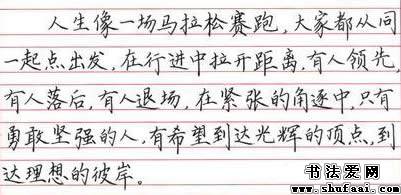 人生像一场马拉松赛跑,大家都从同
一起点出发,在行进中拉开距离,有人领先,
有人落后,有人退场,在紧张的角逐中,只有
勇敢坚强的人,有希望到达光辉的顶点,到
达理想的彼岸。
书法爱网
www.shufaai.com